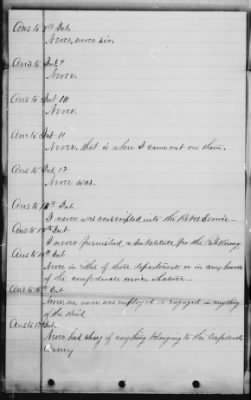 Ans to 8th Int.
Never, never sir.
Ans to Int 9
Never.
Ans to Int. 10
Never.
Ans to Int. 11
Never, that is where I came out on them.
Ans to Int. 12
Never was.
Ans to 13th Int.
I never was conscripted into the Rebel Service—
Ans to 14th Int
I never furnished a substitute for the Rebel Army
Ans to 15th Int
Never in either of those departments or in any branch
of the confederate service whatever—
Ans to 16th Int
Never, sir never was employed or engaged in anything
of the kind.
Ans to 17th Int.
Never had charge of anything belonging to the Confederate
Army